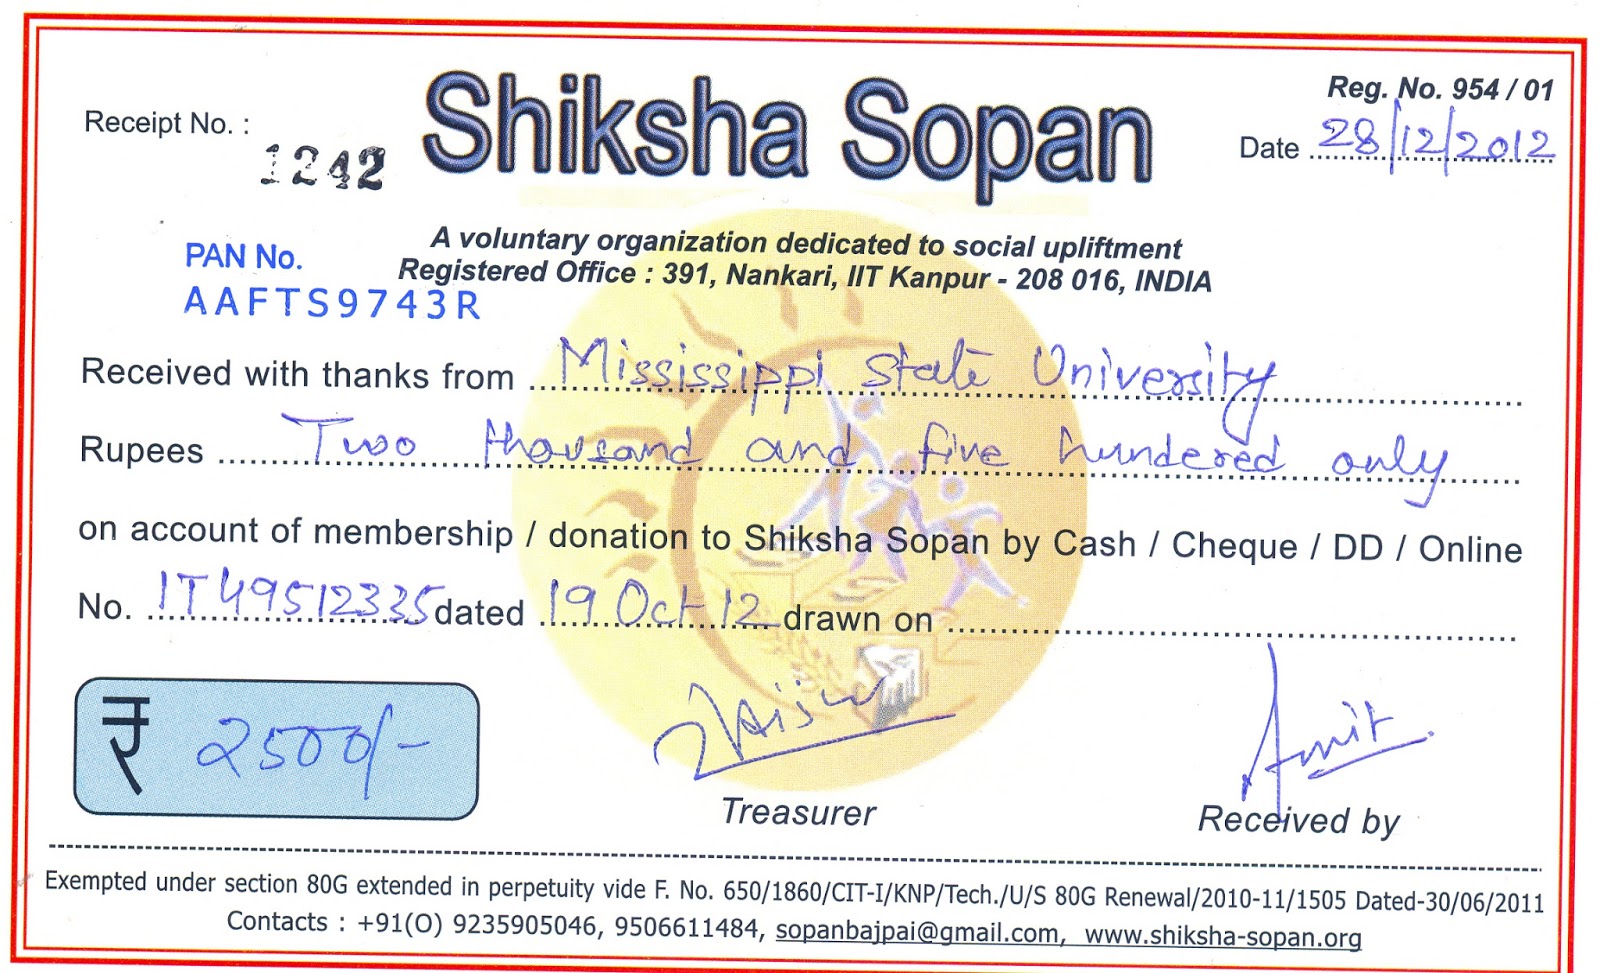 Shiksha Sopan
Reg. No. 954 / 01
Receipt No. : 1242
Date 28/12/2012
A voluntary organization dedicated to social upliftment
PAN No.
Registered Office : 391, Nankari, IIT Kanpur - 208 016, INDIA
AAFTS9743R
Received with thanks from Mississippi State University
Rupees Two thousand and five hundered only
on account of membership / donation to Shiksha Sopan by Cash / Cheque / DD / Online
No. IT49512335 dated 19 Oct 12 drawn on
₹ 2500/-
Amit
Treasurer
Received by
Exempted under section 80G extended in perpetuity vide F. No. 650/1860/CIT-I/KNP/Tech./U/S 80G Renewal/2010-11/1505 Dated-30/06/2011
Contacts : +91(O) 9235905046, 9506611484, sopanbajpai@gmail.com, www.shiksha-sopan.org